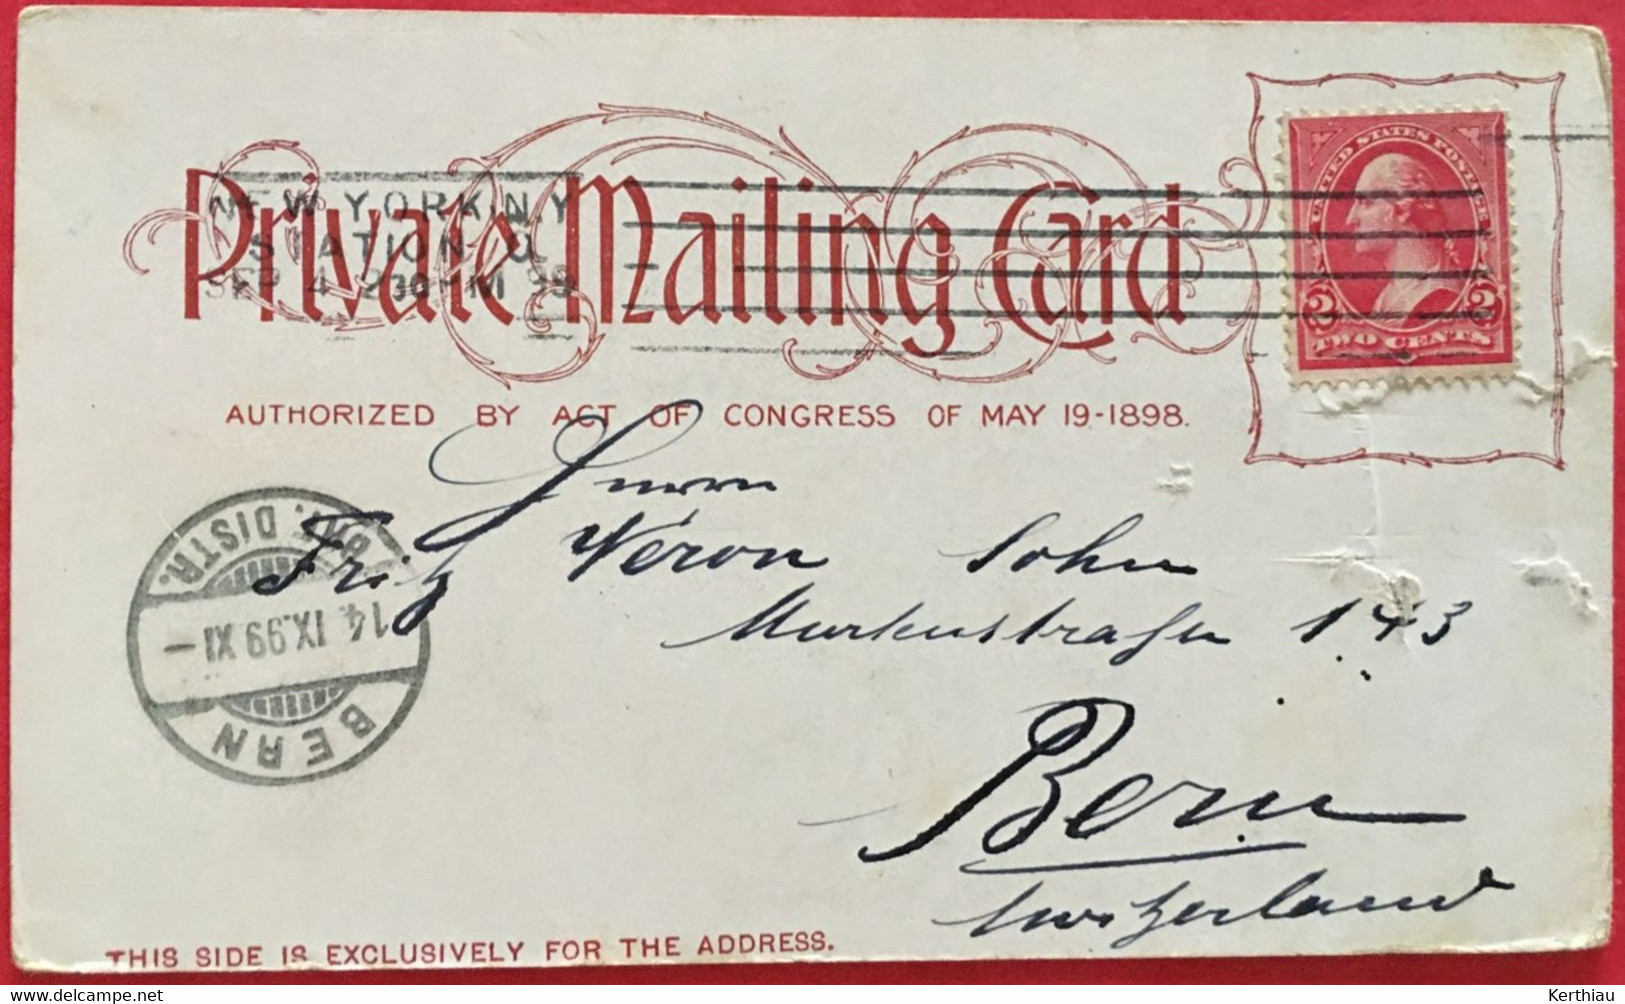 Private Mailing Card
NEW YORK, N.Y.
STATION O
SEP 4 230 PM 99
UNITED STATES POSTAGE
2 2
TWO CENTS
AUTHORIZED BY ACT OF CONGRESS OF MAY 19-1898.
Herrn
Fritz Véron Sohn
143
Bern
Switzerland
BRF. DISTR.
14. IX.99 XI-
BERN
THIS SIDE IS EXCLUSIVELY FOR THE ADDRESS.
Kerthiau